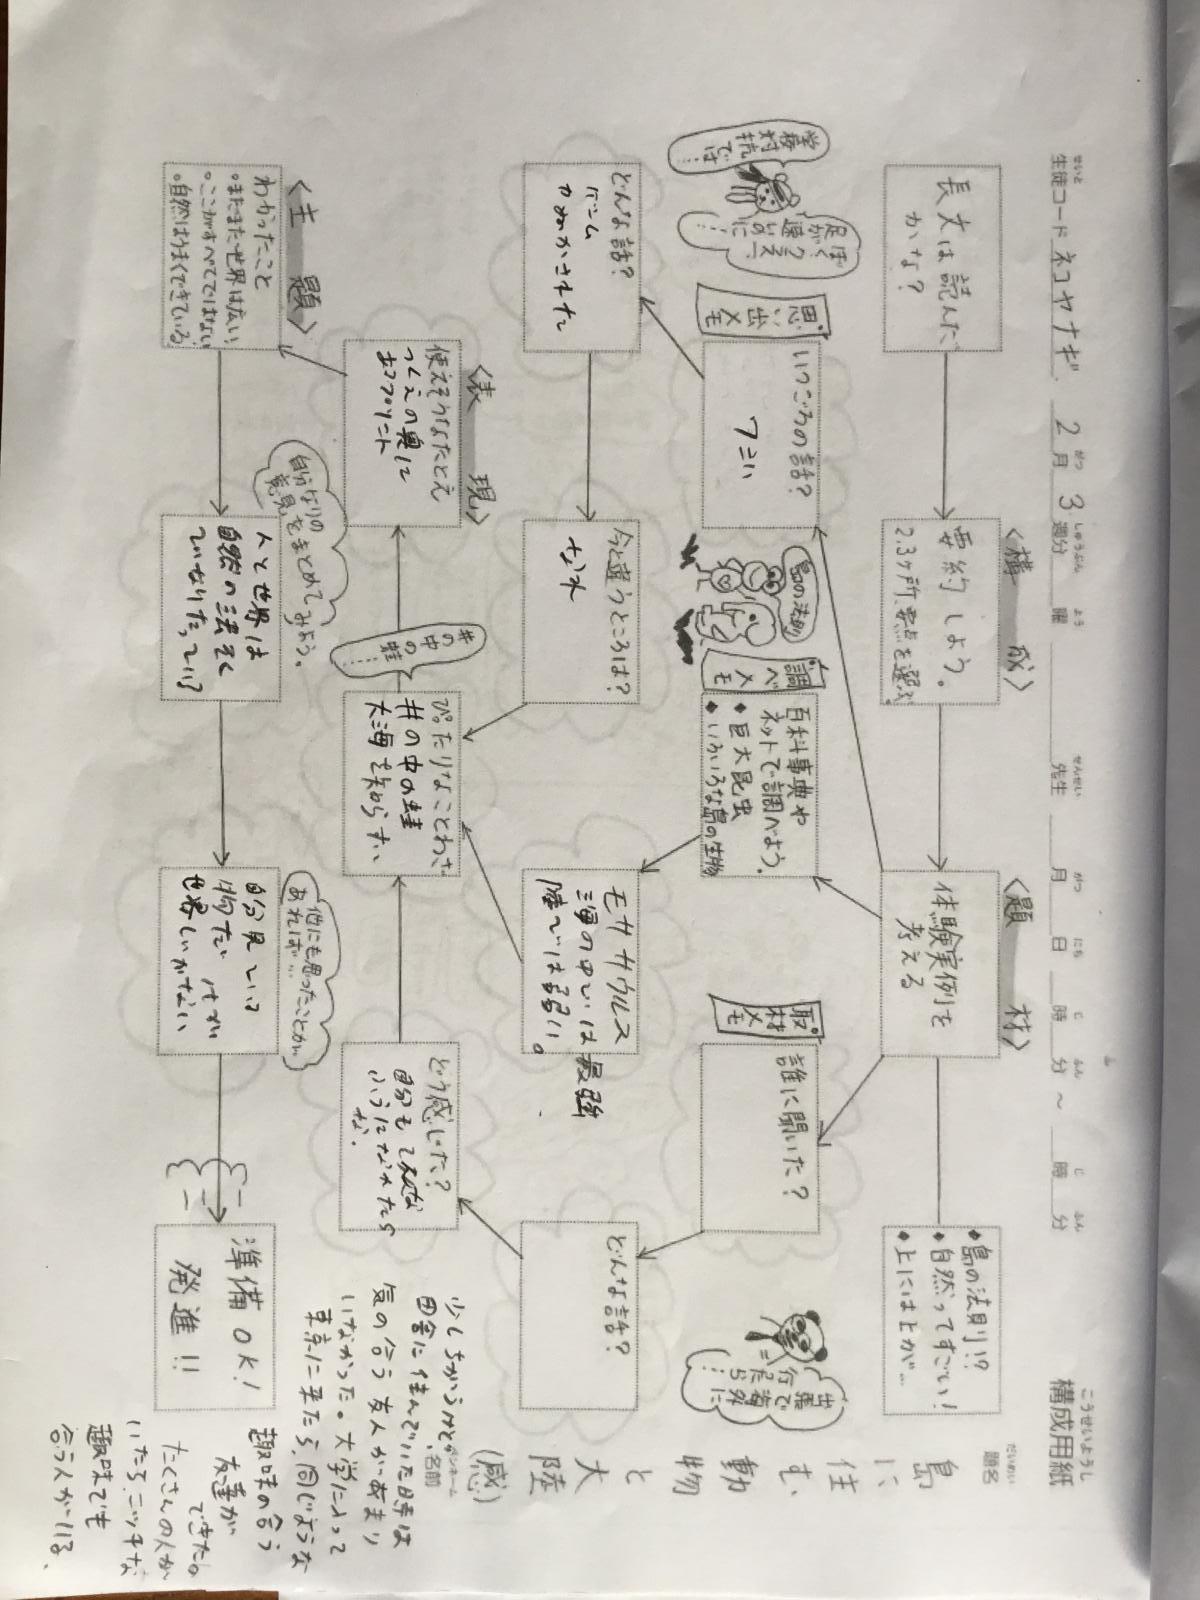 構成用紙
こうせいようし
生徒コード ネコヤナギ 2月 3週分 曜 先生 月 日 時 分 〜 時 分
せいと がつ しゅうぶん よう せんせい がつ にち じ ふん じ ふん
題名
だいめい
島に住む動物と大陸
(感)
ペンネーム
名前
〈構成〉
〈題材〉
長文は読んだ
かな?
要約しよう。
2.3ヶ所、要点を選ぶ
体験実例を
考える
◆島の法則!?
◆自然ってすごい!
◆上には上が…
学校対抗では……
ぼくって足が速いのに……
思い出メモ
いつごろの話?
7こい
島の法則
調べメモ
百科事典や
ネットで調べよう。
◆巨大昆虫
◆いろいろな島の生物
取材メモ
誰に聞いた?
出張で海外に行ったら…
どんな話?
今と違うところは?
なれ
モササウルス
海の中では最強
陸では弱い。
どんな話?
〈表現〉
使えそうなたとえ
つくえの奥に
あるプリント
井の中の蛙……
ぴったりなことわざ
井の中の蛙
大海を知らずい
どう感じた?
自分も
ふうになれたら
な.
〈主題〉
わかったこと
。まだまだ世界は広い
。ここがすべてではない
。自然はうまくできている。
自分なりの意見をまとめてみよう。
人と世界は
自然の法そく
でなりたってい
他にも思ったことがあれば…
自分見てい
世界しかない
準備OK!
発進!!
少しちがうけど、
田舎に住んでいた時は
気の合う友人があまり
いなかった。大学によって
東京に来たら、同じような
趣味の合う
友達が
できた。
たくさんの人が
いたら、ニッチな
趣味でも
合う人がいる、